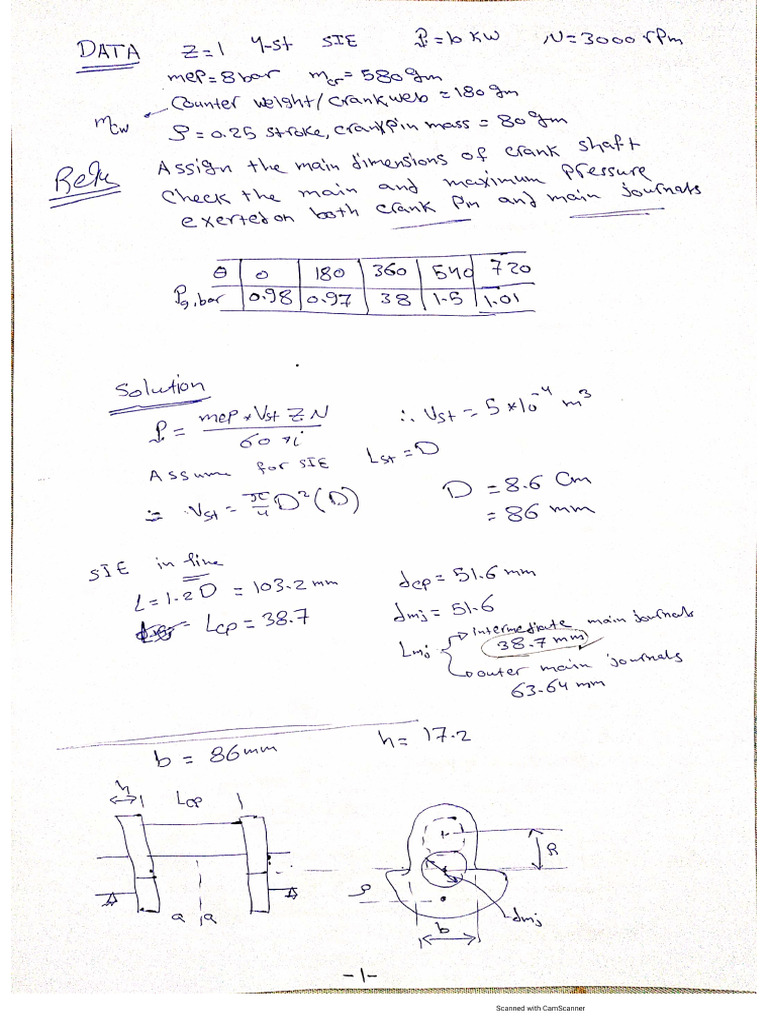 DATA Z=1 4-st SIE P=6 KW N=3000 rpm
mep=8bar mcr=580gm
mcw Counter weight/crank web=180gm
ρ=0.25 stroke, crankpin mass=80gm
Req Assign the main dimensions of crank shaft
Check the main and maximum pressure
exerted on both crank Pin and main journals
θ 0 180 360 540 720
Pg,bar 0.98 0.97 38 1.5 1.01
Solution
P = mep*Vst Z N / 60 * i ∴ Vst = 5*10⁻⁴ m³
Assume for SIE Lst=D
∴ Vst = π/4 D²(D) D = 8.6 Cm
= 86 mm
SIE in line
L=1.2D = 103.2 mm dcp = 51.6 mm
Lcp = 38.7 dmj = 51.6
Lmj intermediate main journals
38.7 mm
outer main journals
63.64 mm
b = 86mm h = 17.2
h Lcp
R
ρ
a a dmj
b
-1-
Scanned with CamScanner